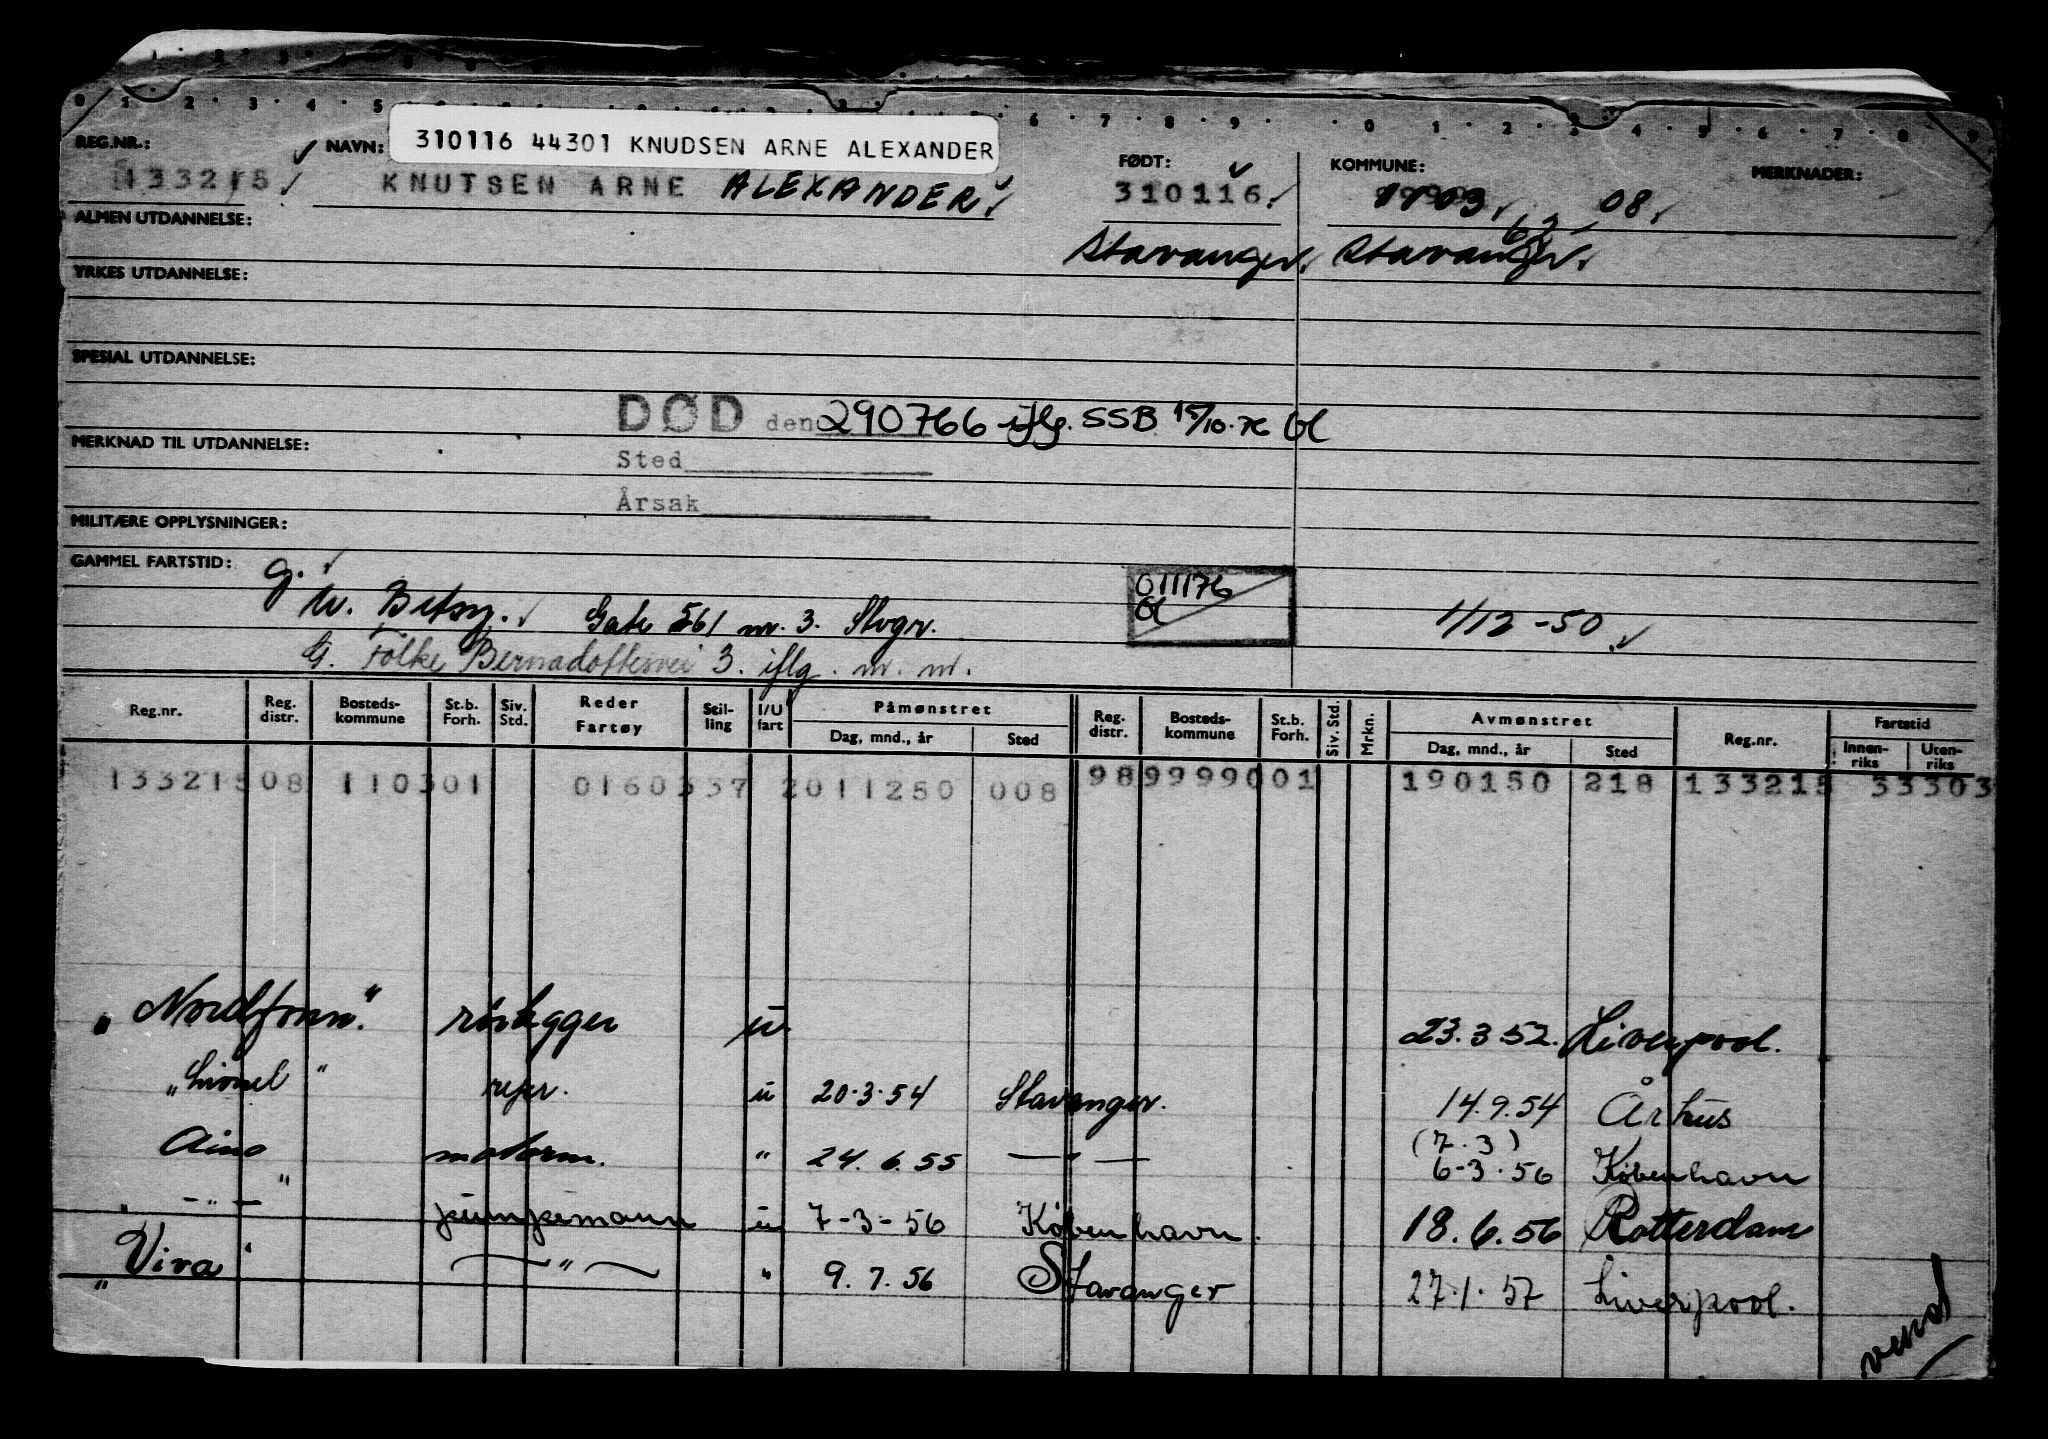 310116 44301 KNUDSEN ARNE ALEXANDER
REG.NR.: NAVN: FØDT: KOMMUNE: MERKNADER:
133215 KNUTSEN ARNE ALEXANDER. 310116. 1103. 08.
ALMEN UTDANNELSE:
Stavanger. Stavanger.
YRKES UTDANNELSE:
SPESIAL UTDANNELSE:
DØD den 290766 iflg. SSB 15/10.76
MERKNAD TIL UTDANNELSE:
Sted
Årsak
MILITÆRE OPPLYSNINGER:
GAMMEL FARTSTID: G.
011176
w. Betsy. Gate 561 nr. 3. Stvgr. 1/12-50
G. Folke Bernadottesvei 3. iflg. m. m.
Reg.nr. Reg. distr. Bosteds-kommune St.b. Forh. Siv. Std. Reder Fartøy Stil-ling I/U fart Påmønstret Dag, mnd., år Sted Reg. distr. Bosteds-kommune St.b. Forh. Siv. Std. Mrkn. Avmønstret Dag, mnd., år Sted Reg.nr. Fartstid Innen-riks Uten-riks
133215 08 110301 0160337 2011250 008 98 9999001 190150 218 133215 33303
"Nordfonn" rørlegger u 23.3.52. Liverpool.
"Lionel" repr. u 20.3.54 Stavanger. 14.9.54 Århus
(7.3)
Aino " motorm. " 24.6.55 —"— 6-3.56 København
" —"— pumpemann u 7-3-56 København. 18.6.56 Rotterdam
"Viva" —"— " 9.7.56 Stavanger 27.1.57 Liverpool.
vend